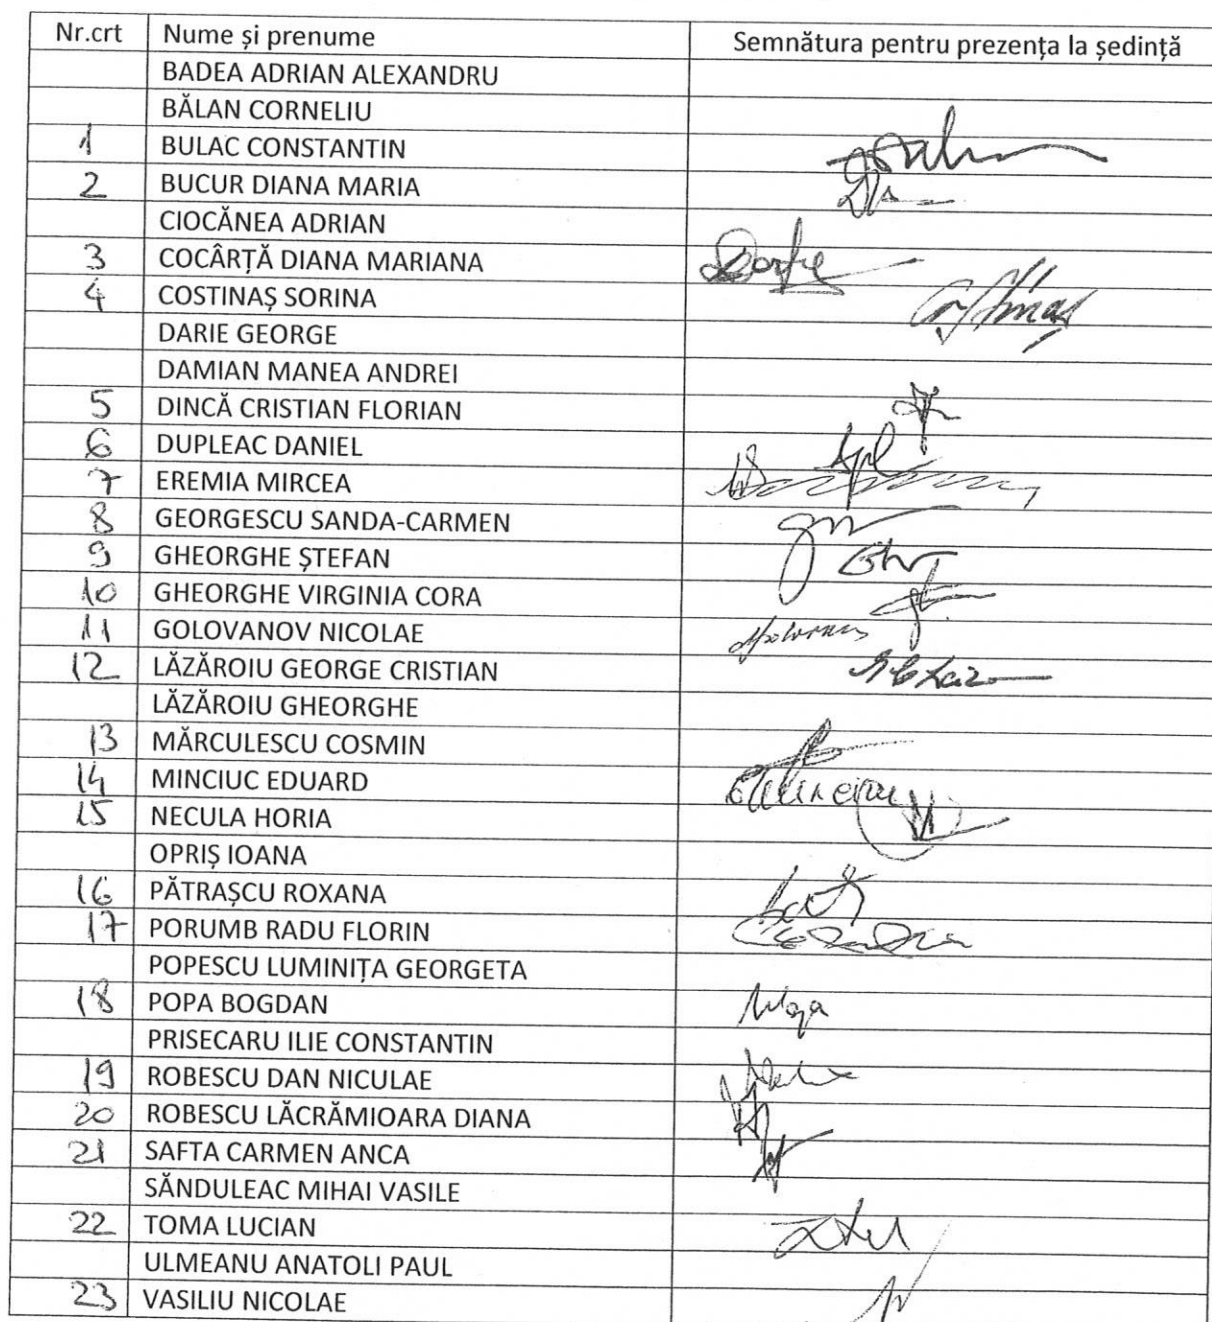 Nr.crt Nume și prenume Semnătura pentru prezența la ședință
BADEA ADRIAN ALEXANDRU
BĂLAN CORNELIU
1 BULAC CONSTANTIN
2 BUCUR DIANA MARIA
CIOCĂNEA ADRIAN
3 COCÂRȚĂ DIANA MARIANA
4 COSTINAȘ SORINA
DARIE GEORGE
DAMIAN MANEA ANDREI
5 DINCĂ CRISTIAN FLORIAN
6 DUPLEAC DANIEL
7 EREMIA MIRCEA
8 GEORGESCU SANDA-CARMEN
9 GHEORGHE ȘTEFAN
10 GHEORGHE VIRGINIA CORA
11 GOLOVANOV NICOLAE
12 LĂZĂROIU GEORGE CRISTIAN
LĂZĂROIU GHEORGHE
13 MĂRCULESCU COSMIN
14 MINCIUC EDUARD
15 NECULA HORIA
OPRIȘ IOANA
16 PĂTRAȘCU ROXANA
17 PORUMB RADU FLORIN
POPESCU LUMINIȚA GEORGETA
18 POPA BOGDAN
PRISECARU ILIE CONSTANTIN
19 ROBESCU DAN NICULAE
20 ROBESCU LĂCRĂMIOARA DIANA
21 SAFTA CARMEN ANCA
SĂNDULEAC MIHAI VASILE
22 TOMA LUCIAN
ULMEANU ANATOLI PAUL
23 VASILIU NICOLAE